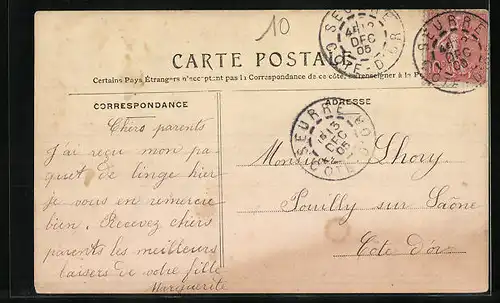 10
SEURRE
12
DEC
05
COTE D'OR
SEURRE
12
DEC
05
COTE D'OR
CARTE POSTALE
Certains Pays Étrangers n'acceptant pas la Correspondance de ce côté, se renseigner à la
CORRESPONDANCE
ADRESSE
SEURRE
13
DEC
05
COTE D'OR
Chers parents
J'ai reçu mon pa
quet de linge hier
je vous en remercie
bien. Recevez chers
parents les meilleurs
baisers de votre fille
Marguerite
Monsieur Lhory
Pouilly sur Saône
Côte d'or